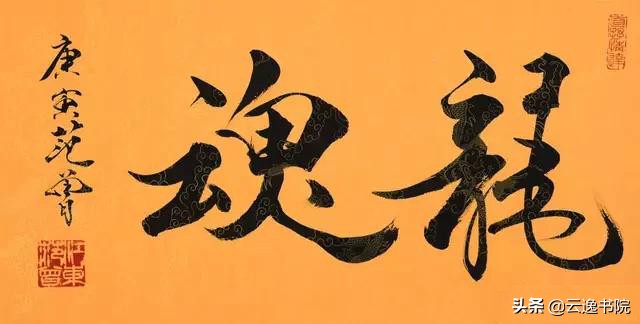 龍魂
庚寅范曾
江東范曾
头条 @云逸书院